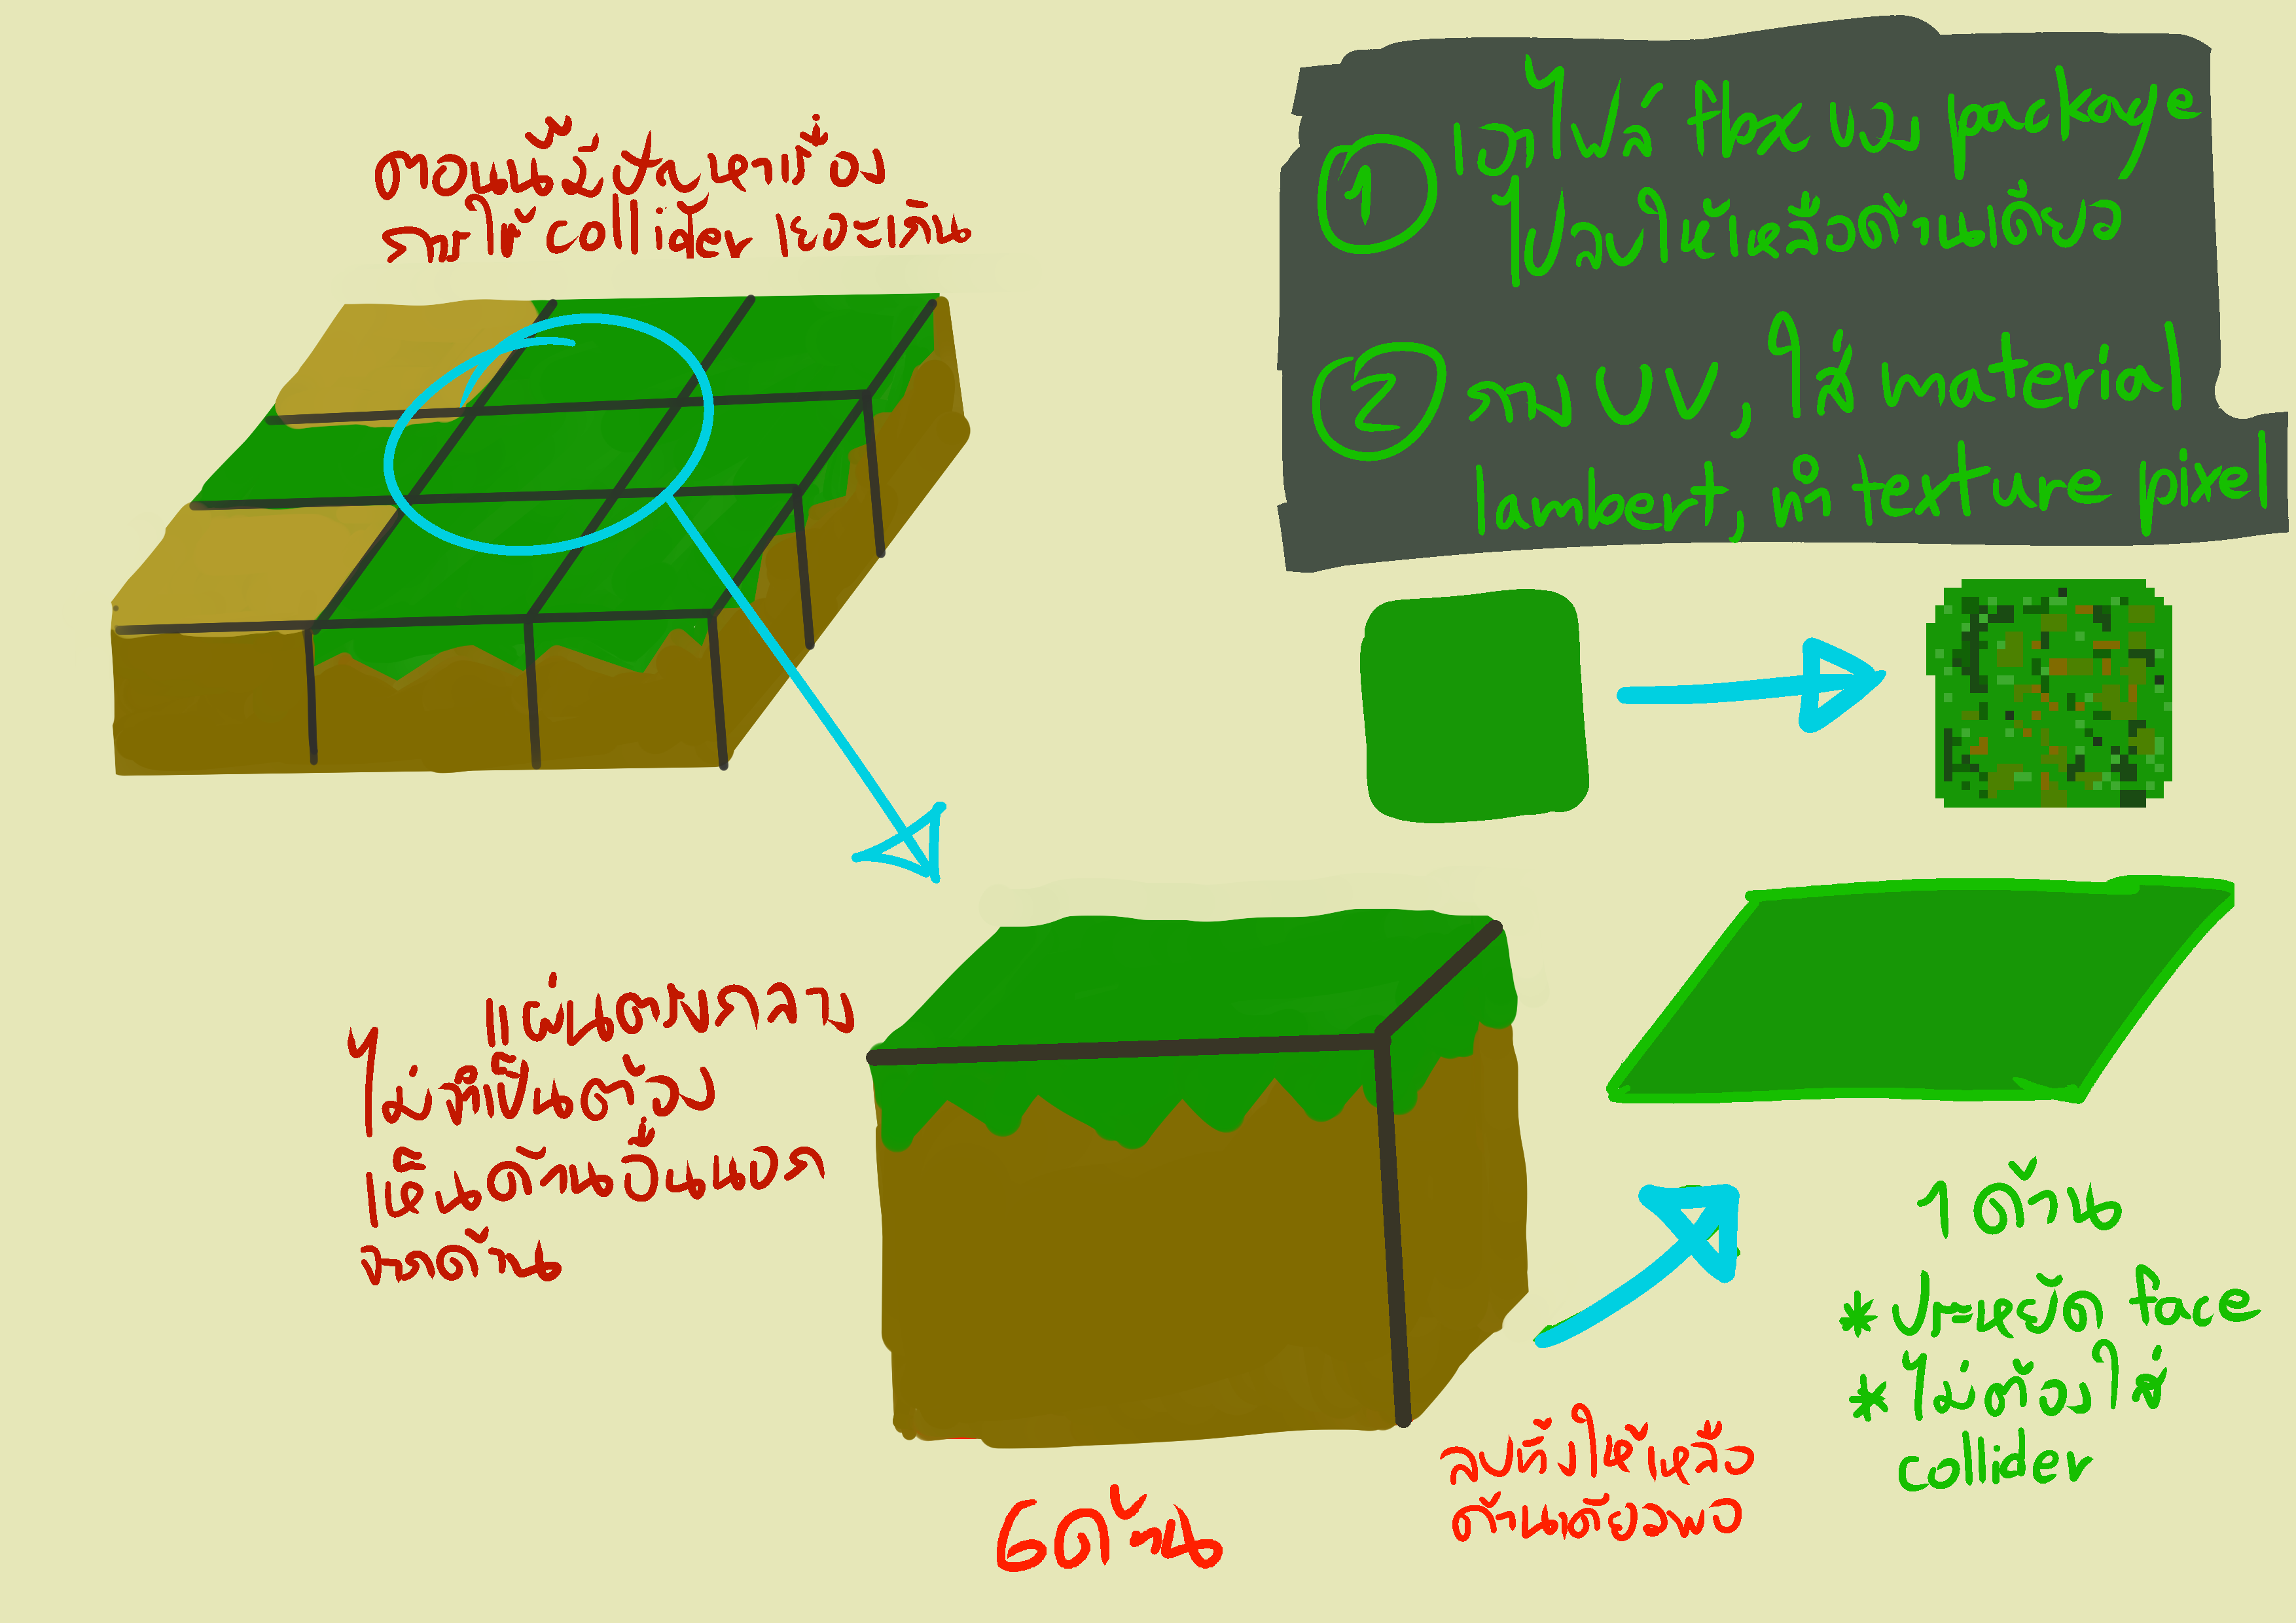 ตอนนี้มีปัญหาเรื่อง
การใช้ collider เยอะเกิน
① เอาไฟล์ fbx ของ package
ไปลบให้เหลือด้านเดียว
② กาง UV, ใส่ material
lambert, ทำ texture pixel
แผ่นตรงกลาง
ไม่จำเป็นต้อง
เห็นด้านอื่นนอก
จากด้าน
6ด้าน
ลบทิ้งให้เหลือ
ด้านเดียวพอ
1 ด้าน
* ประหยัด face
* ไม่ต้องใส่
collider